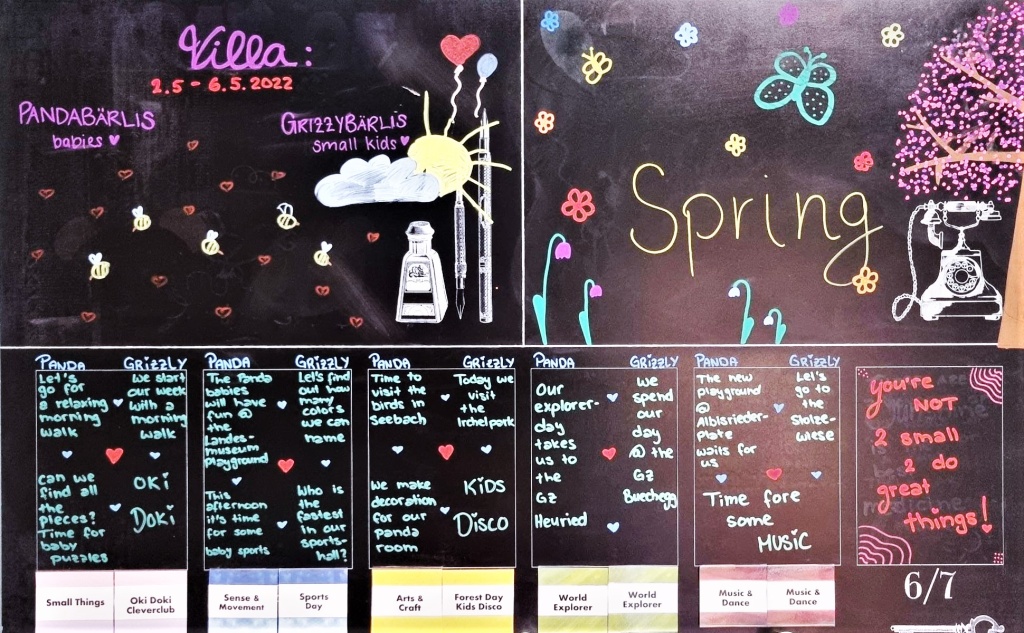 Villa:
2.5 - 6.5.2022
PANDABÄRLIS
babies
GRIZZYBÄRLIS
small kids
Spring
PANDA
Let's
go for
a relaxing
morning
walk
can we
find all
the
pieces?
Time for
baby
puzzles
GRIZZLY
we start
our week
with a
morning
walk
OKi
DoKi
PANDA
The Panda
babies
will have
fun @
the
Landes-
museum
Playground
This
afternoon
it's time
for some
baby sports
GRIZZLY
Let's find
out how
many
colors
we can
name
Who is
the
fastest
in our
sports-
hall?
PANDA
Time to
visit the
birds in
Seebach
We make
decoration
for our
Panda
room
GRIZZLY
Today we
visit
the
Irchelpark
KiDS
DiSCO
PANDA
Our
explorer-
day
takes
us to
the
GZ
Heuried
GRIZZLY
we
spend
our
day
@ the
GZ
Buechegg
PANDA
The new
playground
@
Albisrieder-
plate
waits for
us
GRIZZLY
Let's
go to
the
Stolze-
wiese
Time fore
some
MUSIC
you're
NOT
2 small
2 do
great
things!
Small Things
Oki Doki
Cleverclub
Sense &
Movement
Sports
Day
Arts &
Craft
Forest Day
Kids Disco
World
Explorer
World
Explorer
Music &
Dance
Music &
Dance
6/7